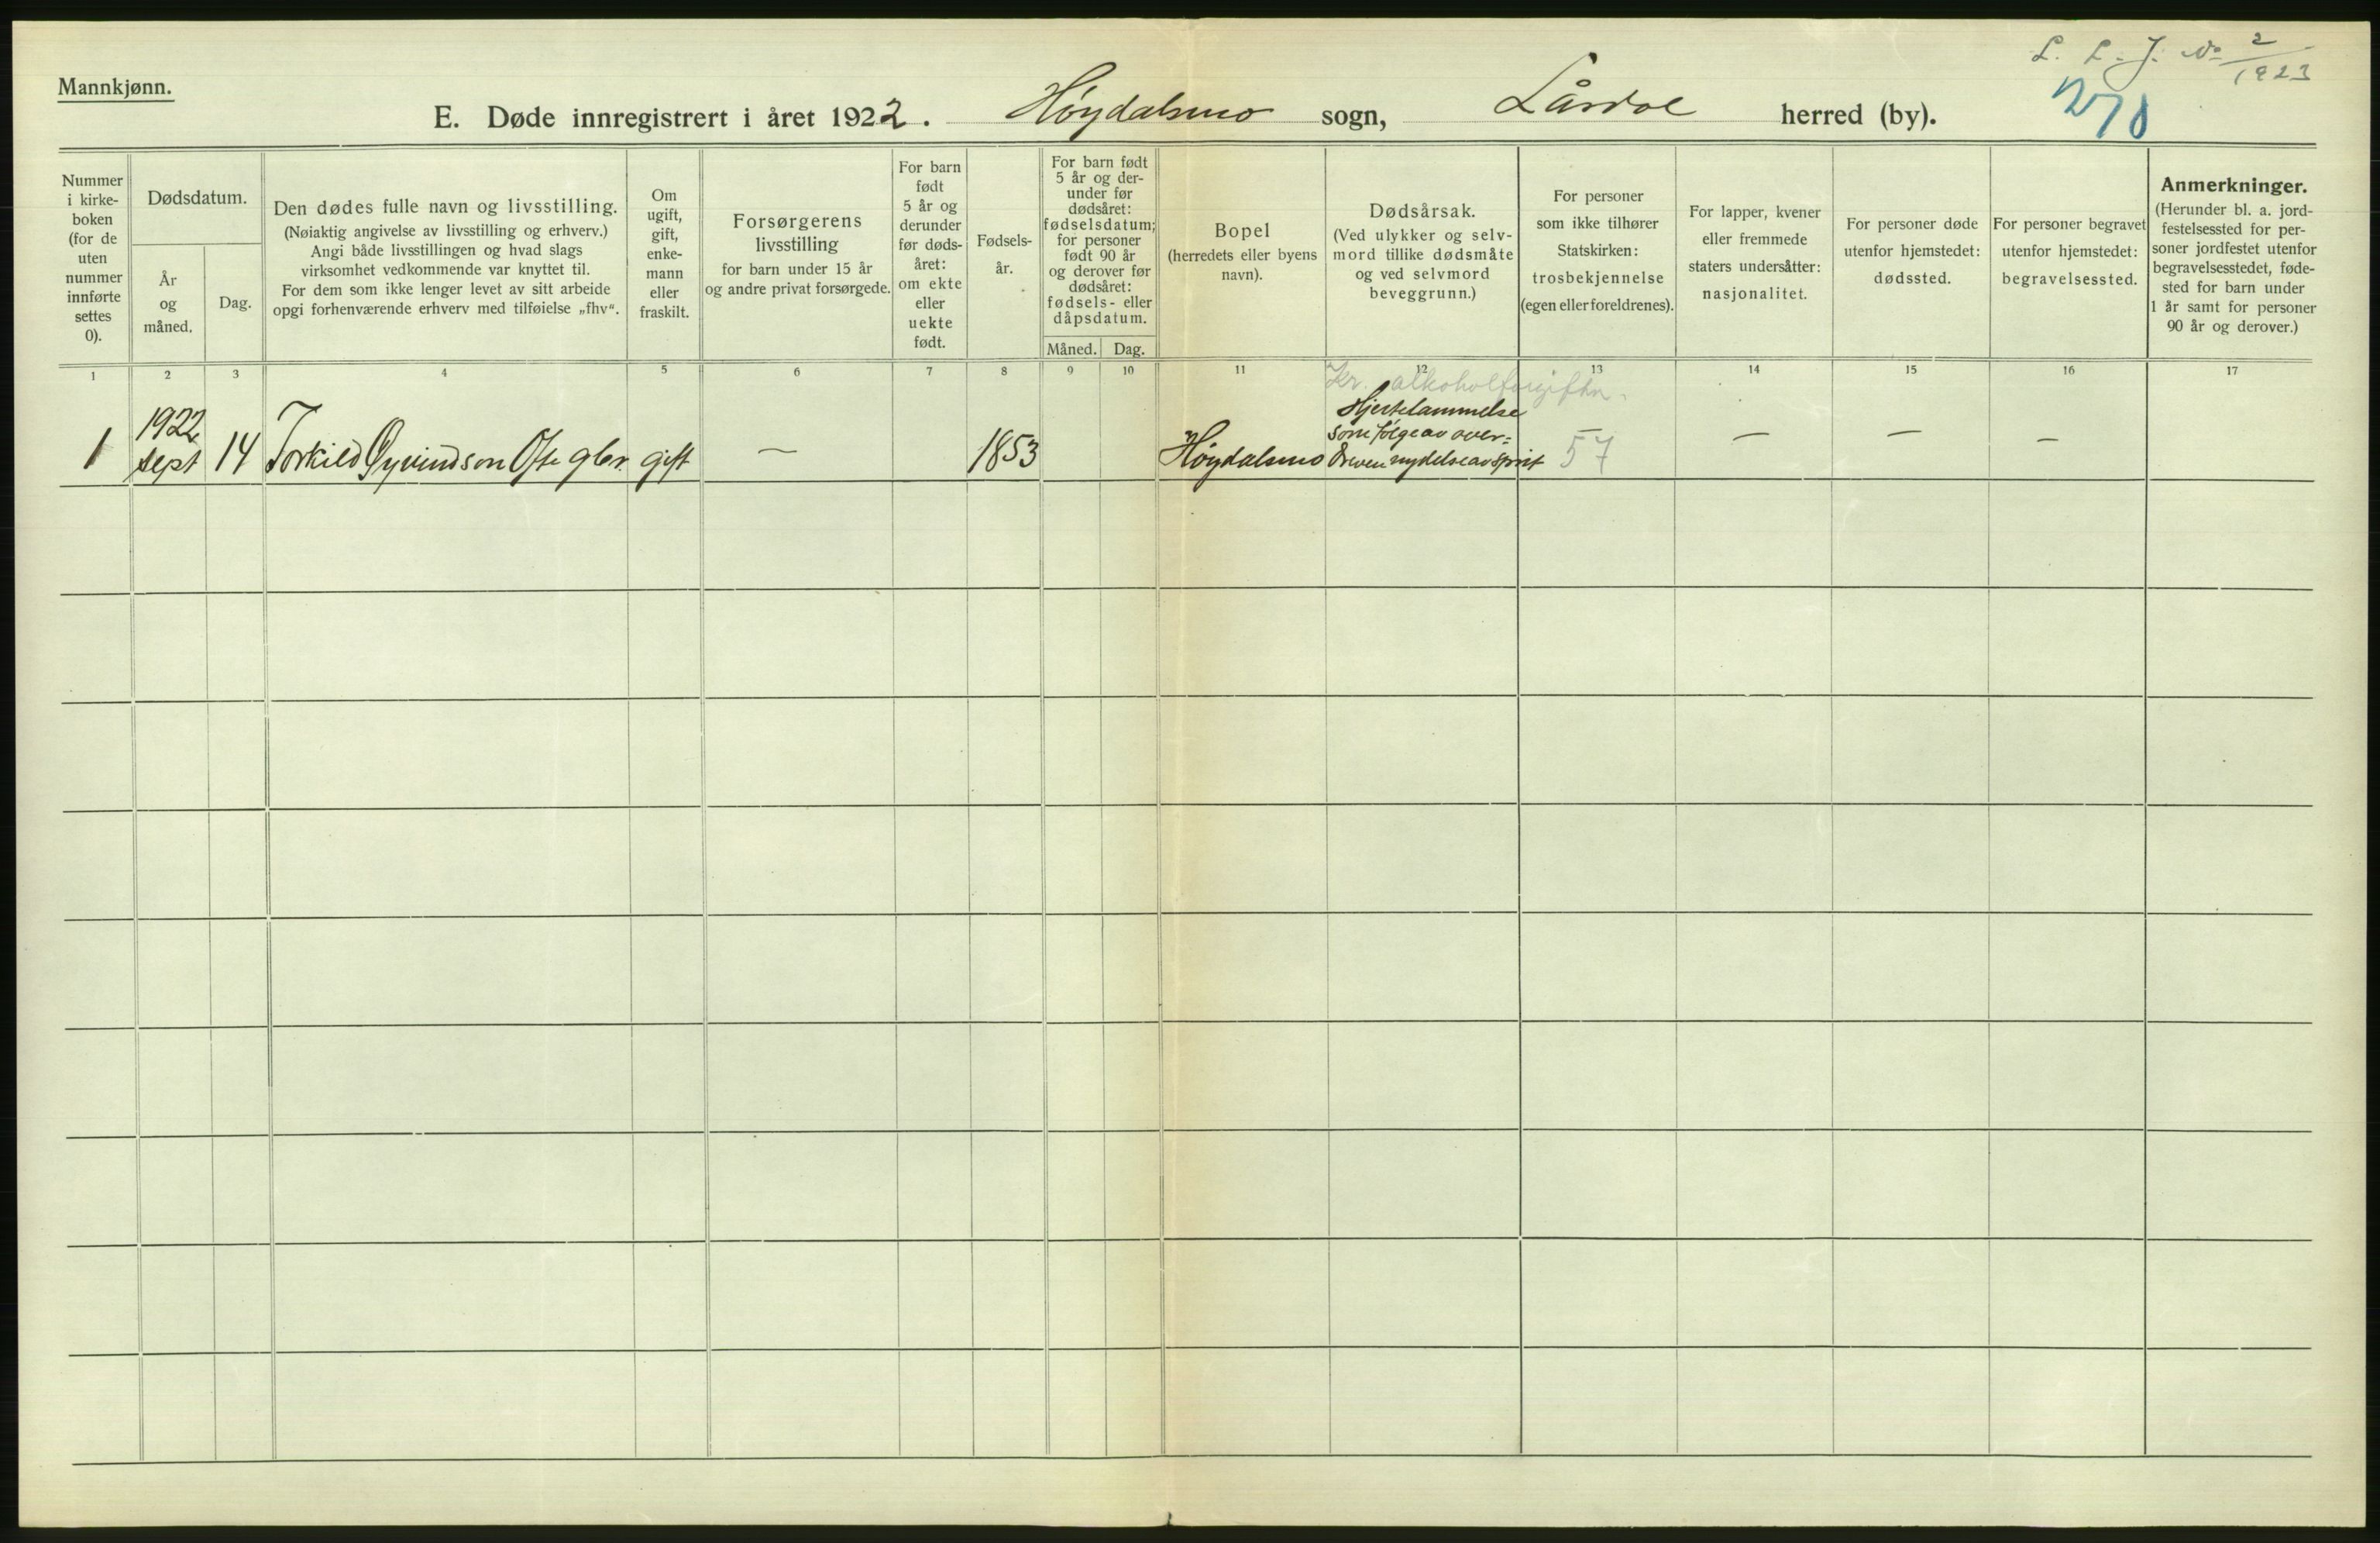 L. L. J. No 2/1923
270
Mannkjønn.
E. Døde innregistrert i året 1922. Høydalsmo sogn, Lårdal herred (by).
Nummer
i kirke-
boken
(for de
uten
nummer
innførte
settes
0).
Dødsdatum.
År
og
måned.
Dag.
Den dødes fulle navn og livsstilling.
(Nøiaktig angivelse av livsstilling og erhverv.)
Angi både livsstillingen og hvad slags
virksomhet vedkommende var knyttet til.
For dem som ikke lenger levet av sitt arbeide
opgi forhenværende erhverv med tilføielse „fhv“.
Om
ugift,
gift,
enke-
mann
eller
fraskilt.
Forsørgerens
livsstilling
for barn under 15 år
og andre privat forsørgede.
For barn
født
5 år og
derunder
før døds-
året:
om ekte
eller
uekte
født.
Fødsels-
år.
For barn født
5 år og der-
under før
dødsåret:
fødselsdatum;
for personer
født 90 år
og derover før
dødsåret:
fødsels- eller
dåpsdatum.
Måned. Dag.
Bopel
(herredets eller byens
navn).
Dødsårsak.
(Ved ulykker og selv-
mord tillike dødsmåte
og ved selvmord
beveggrunn.)
For personer
som ikke tilhører
Statskirken:
trosbekjennelse
(egen eller foreldrenes).
For lapper, kvener
eller fremmede
staters undersåtter:
nasjonalitet.
For personer døde
utenfor hjemstedet:
dødssted.
For personer begravet
utenfor hjemstedet:
begravelsessted.
Anmerkninger.
(Herunder bl. a. jord-
festelsessted for per-
soner jordfestet utenfor
begravelsesstedet, føde-
sted for barn under
1 år samt for personer
90 år og derover.)
1 2 3 4 5 6 7 8 9 10 11 12 13 14 15 16 17
Kr. alkoholforgiftn.
1922
Hjertelammelse
som følge av over=
1 sept 14 Torkild Øyvindson Ofte gbr. gift — 1853 Høydalsmo dreven nydelse av sprit — 57 — — —